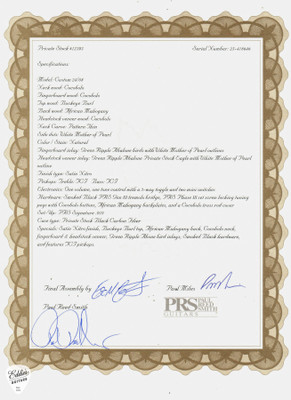 Private Stock #12205
Specifications
Model: Custom 24/08
Neck wood: Cocobolo
Fingerboard wood: Cocobolo
Top wood: Buckeye Burl
Back wood: African Mahogany
Headstock veneer wood: Cocobolo
Neck Carve: Pattern Thin
Side dots: White Mother of Pearl
Color / Stain: Natural
Fingerboard inlay: Green Ripple Abalone birds with White Mother of Pearl outlines
Headstock veneer inlay: Green Ripple Abalone Private Stock Eagle with White Mother of Pearl
outline
Finish type: Satin Nitro
Pickups: Treble: TCI Bass: TCI
Electronics: One volume, one tone control with a 3-way toggle and two mini switches
Hardware: Smoked Black PRS Gen III tremolo bridge, PRS Phase III set screw locking tuning
pegs with Cocobolo buttons, African Mahogany backplates, and a Cocobolo truss rod cover
Set-Up: PRS Signature
Case type: Private Stock Black
Specials: Satin Nitro finish, Buckeye Burl top, African Mahogany back, Cocobolo neck,
fingerboard & headstock veneer, Green Ripple Abalone bird inlays, Smoked Black hardware,
and features TCI pickups.
Final Assembly by
Paul Miles
Paul Reed Smith
PRS PAUL REED SMITH
GUITARS
Eddie's
GUITARS